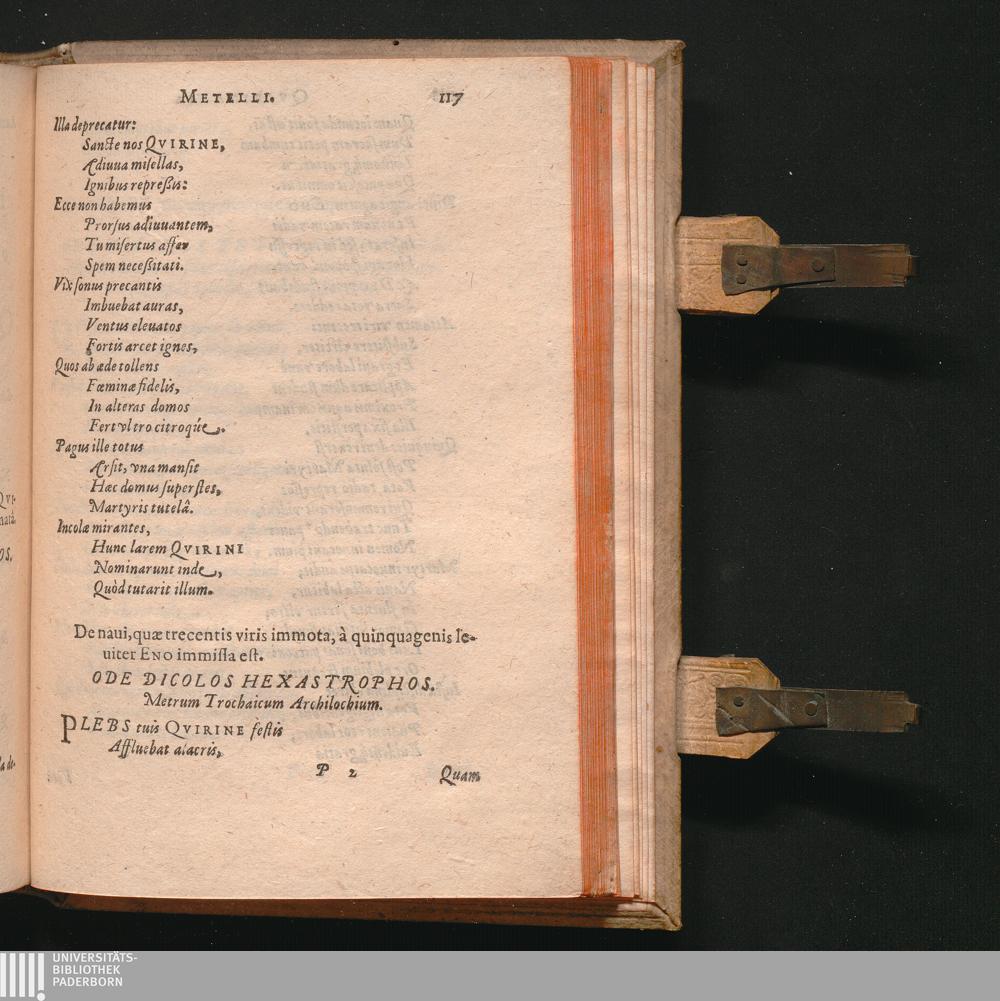 METELLI. 117
Illa deprecatur:
Sancte nos QVIRINE,
Ædiuua misellas,
Ignibus repreßis:
Ecce non habemus
Prorsus adiuuantem,
Tu misertus affer
Spem neceßitati.
Vix sonus precantis
Imbuebat auras,
Ventus eleuatos
Fortis arcet ignes,
Quos ab æde tollens
Fœminæ fidelis,
In alteras domos
Fert vltro citroq́ue.
Pagus ille totus
Ærsit, vna mansit
Hæc domus superstes,
Martyris tutelâ.
Incolæ mirantes,
Hunc larem QVIRINI
Nominarunt inde,
Quòd tutarit illum.
De naui, quæ trecentis viris immota, à quinquagenis le-
uiter ENO immissa est.
ODE DICOLOS HEXASTROPHOS.
Metrum Trochaicum Archilochium.
PLEBS tuis QVIRINE festis
Affluebat alacris,
P 2 Quam
UNIVERSITÄTS-
BIBLIOTHEK
PADERBORN